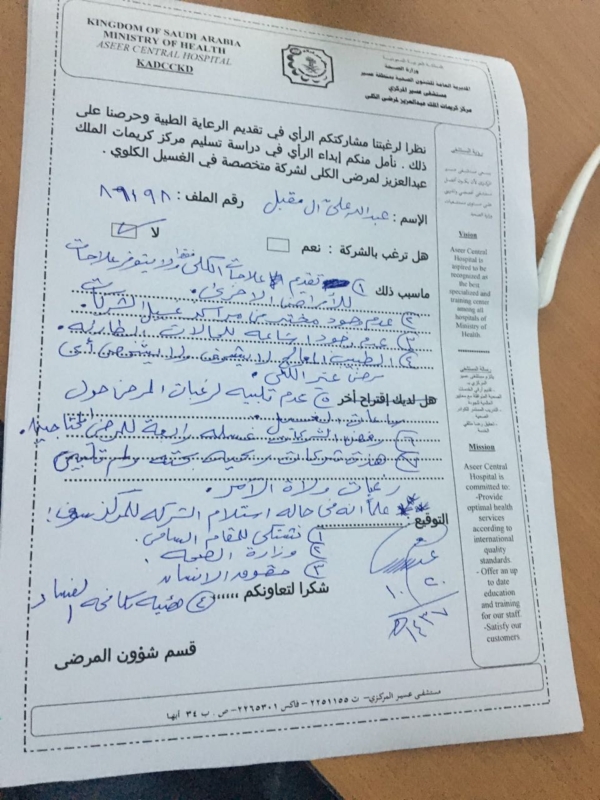 KINGDOM OF SAUDI ARABIA
MINISTRY OF HEALTH
ASEER CENTRAL HOSPITAL
KADCCKD
وزارة الصحة
المديرية العامة للشئون الصحية بمنطقة عسير
مستشفى عسير المركزي
مركز كريمات الملك عبدالعزيز لمرضى الكلى
نظرا لرغبتنا مشاركتكم الرأي في تقديم الرعاية الطبية وحرصنا على
ذلك . نأمل منكم إبداء الرأي في دراسة تسليم مركز كريمات الملك
عبدالعزيز لمرضى الكلى لشركة متخصصة في الغسيل الكلوي .
الإسم : عبدالله علي آل مقبل رقم الملف :
هل ترغب بالشركة : نعم لا
ماسبب ذلك ① تقدم علاجات الكلى فقط ولا يتوفر علاجات
للأمراض الأخرى.
② عدم وجود مختبر مراكز غسيل الشركات
③ عدم وجود للحالات الطارئة.
④ الطبيب المعالج لا ولا أي
مرض غير الكلى.
هل لديك إقتراح آخر ⑤ عدم تلبية لرغبات المرضى حول
ساعات الغسيل.
⑥ رفض الشركات غسله رابعة للمرضى
⑦ هذه شركات ربحية بحته ولم تلبي
رغبات ولاة الأمر.
علماً انه في حالة استلام الشركة للمركز سوف
التوقيع :
① نشتكي للمقام السامي.
② وزارة الصحة.
③ حقوق الإنسان
④ هيئة مكافحة الفساد
شكرا لتعاونكم
١٠/٢٠
١٤٣٧هـ
قسم شؤون المرضى
رؤية المستشفى
Vision
Aseer Central
Hospital is
aspired to be
recognized as
the best
specialized and
training center
among all
hospitals of
Ministry of
Health.
رسالة المستشفى
Mission
Aseer Central
Hospital is
committed to:
-Provide
optimal health
services
according to
international
quality
standards.
- Offer an up
to date
education
and training
for our staff.
-Satisfy our
customers.
مستشفى عسير المركزي- ت ٢٢٥١١٥٥ – فاكس ٢٢٦٥٣٠١- ص . ب ٣٤ أبها